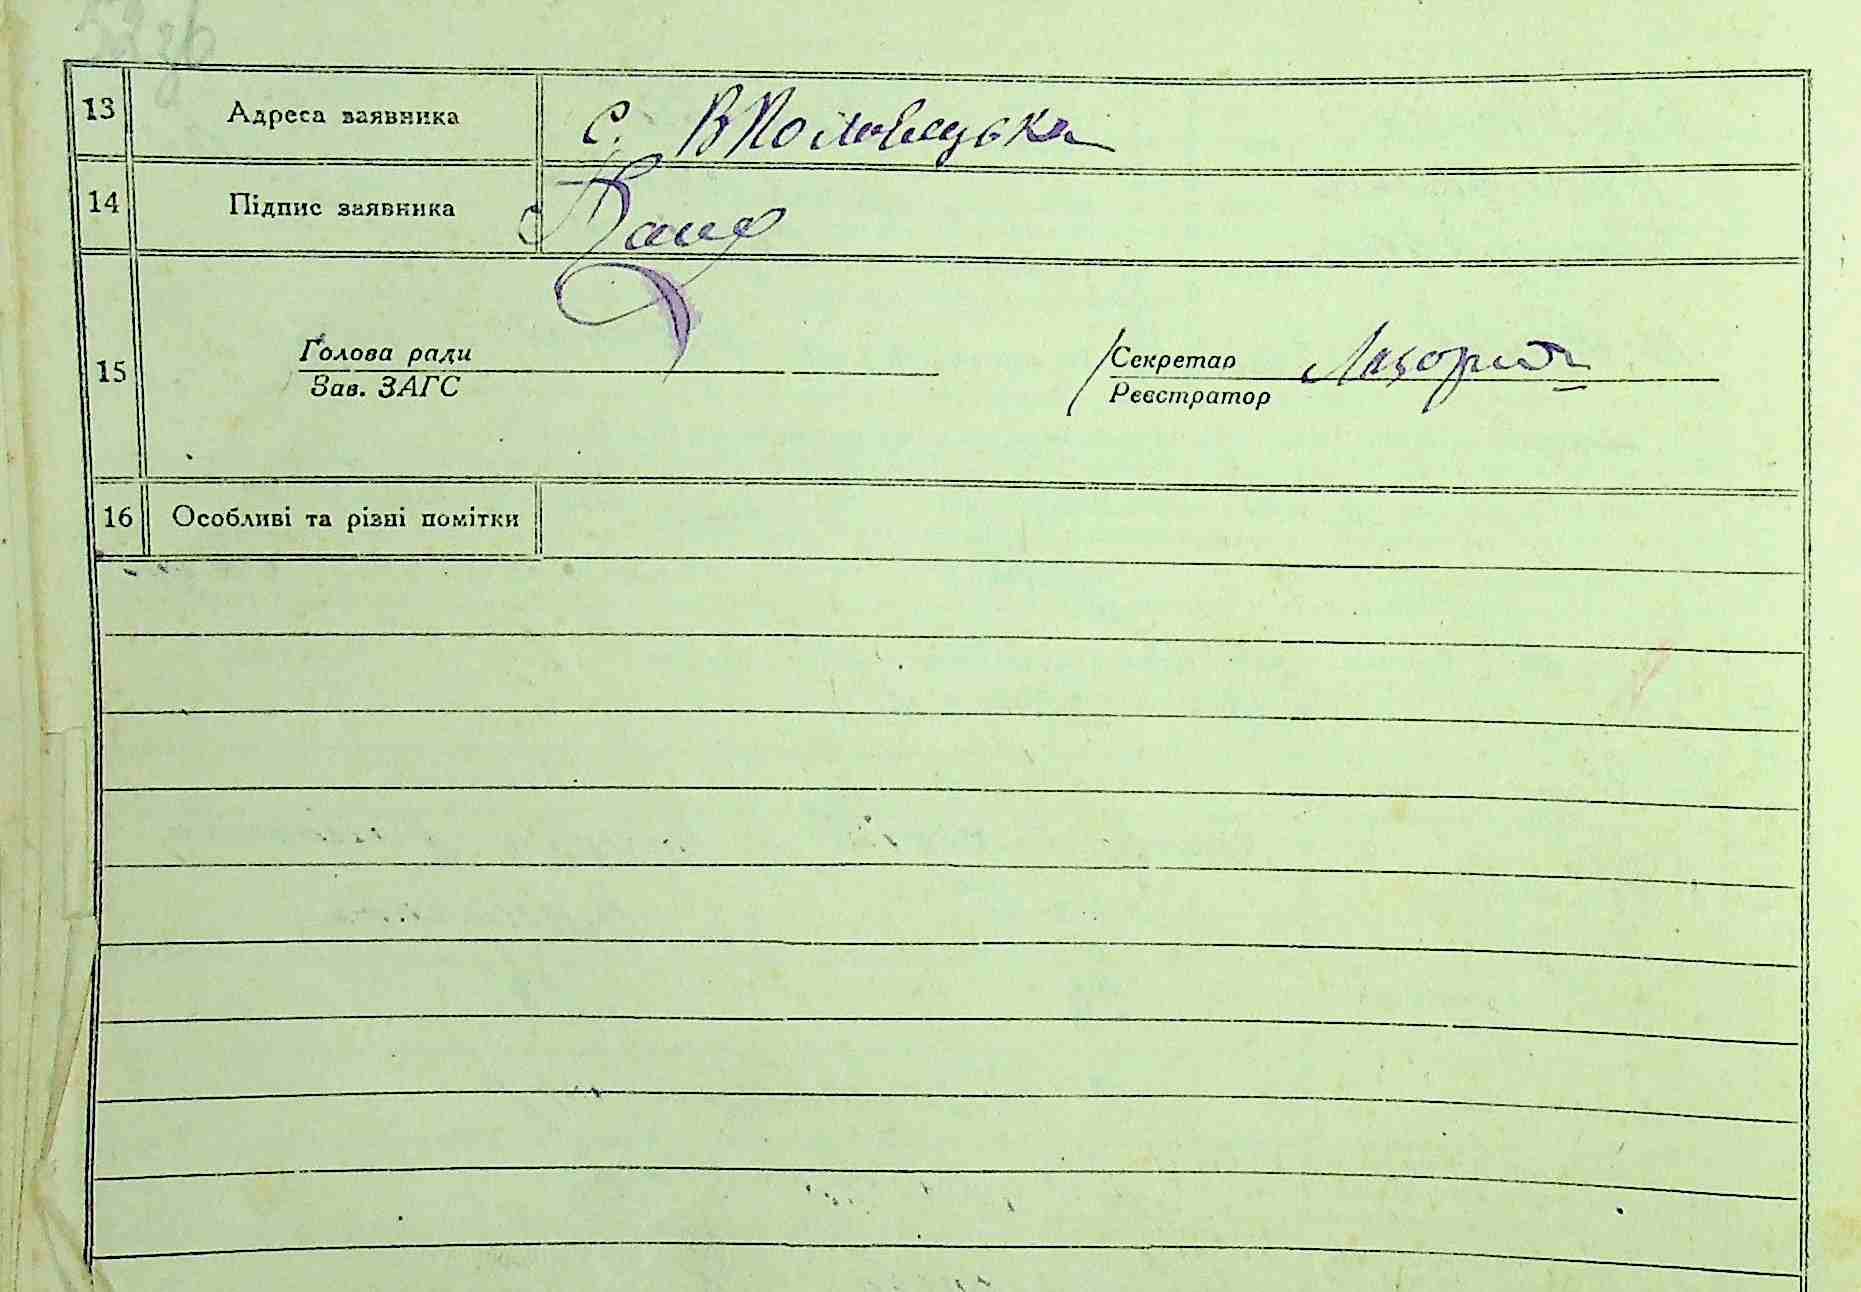 13 Адреса заявника с. В Половецька
14 Підпис заявника
15 Голова ради Секретар
Зав. ЗАГС Реєстратор
16 Особливі та різні помітки